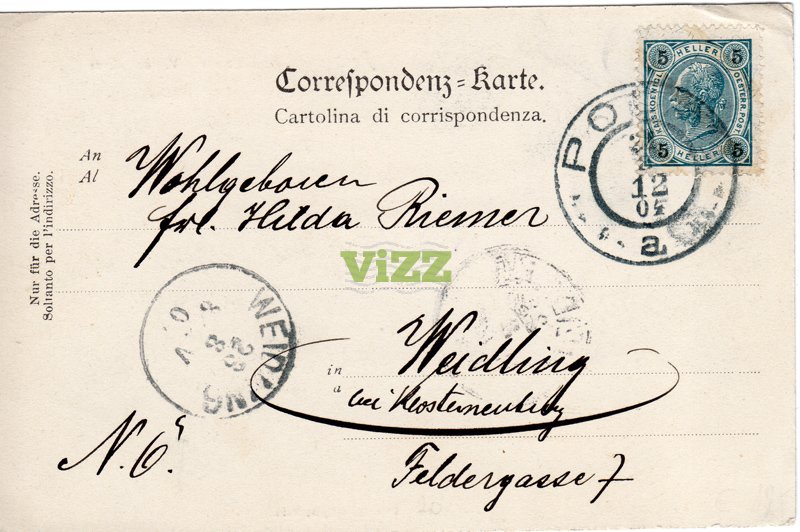 Correspondenz-Karte.
Cartolina di corrispondenza.
5 HELLER 5
KAIS. KOENIGL.
OESTERR. POST.
5 HELLER 5
PO
12
04
a
An
Al
Wohlgeboren
Frl. Hilda Riemer
Nur für die Adresse.
Soltanto per l'indirizzo.
ViZZ
WEIDLING
in
a
Weidling
bei Klosterneuburg
N.Ö.
Feldergasse 7